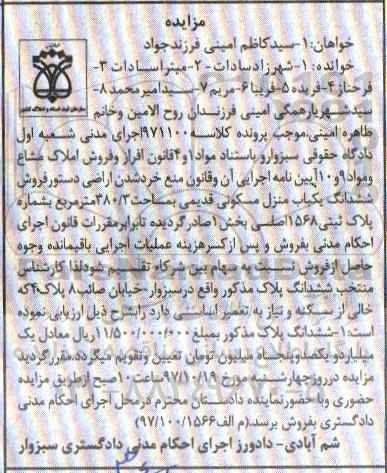 مزایده
خواهان:۱-سیدکاظم امینی فرزندجواد
خوانده:۱-شهرزادسادات ۲-میترا سادات ۳-
فرحناز۴-فریده۵-فریبا۶-مریم۷-سیدامیرمحمد۸-
سیدشهریارهمگی امینی فرزندان روح الامین وخانم
طاهره امینی،موجب پرونده کلاسه ۹۷۱۱۰۰اجرای مدنی شعبه اول
دادگاه حقوقی سبزوارو باستناد مواد۱و۴قانون افراز وفروش املاک مشاع
ومواد۹و۱۰آیین نامه اجرایی آن وقانون منع خردشدن اراضی دستورفروش
ششدانگ یکباب منزل مسکونی قدیمی بمساحت۳۸۰/۳مترمربع بشماره
پلاک ثبتی۱۵۶۸اصلی بخش۱صادرگردیده تابرابرمقررات قانون اجرای
احکام مدنی بفروش و پس ازکسرهزینه عملیات اجرایی باقیمانده وجوه
حاصل ازفروش نسبت به سهام بین شرکاء تقسیم شودلذا کارشناس
منتخب ششدانگ پلاک مذکور واقع درسبزوار خیابان صائب۸ پلاک۴که
خالی از سکنه و نیاز به تعمیر اساسی دارد رابشرح ذیل ارزیابی نموده
است:۱-ششدانگ پلاک مذکور بمبلغ ۱۱/۵۰۰/۰۰۰/۰۰۰ریال معادل یک
میلیاردو یکصدوپنجاه میلیون تومان تعیین وتقویم میگردد.مقررگردید
مزایده درروزچهارشنبه مورخ ۹۷/۱۰/۱۹ساعت۱۰صبح ازطریق مزایده
حضوری وبا حضورنماینده دادستان محترم درمحل اجرای احکام مدنی
دادگستری بفروش برسد.(م الف۹۷/۱۰۰/۱۵۶۶)
شم آبادی- دادورز اجرای احکام مدنی دادگستری سبزوار